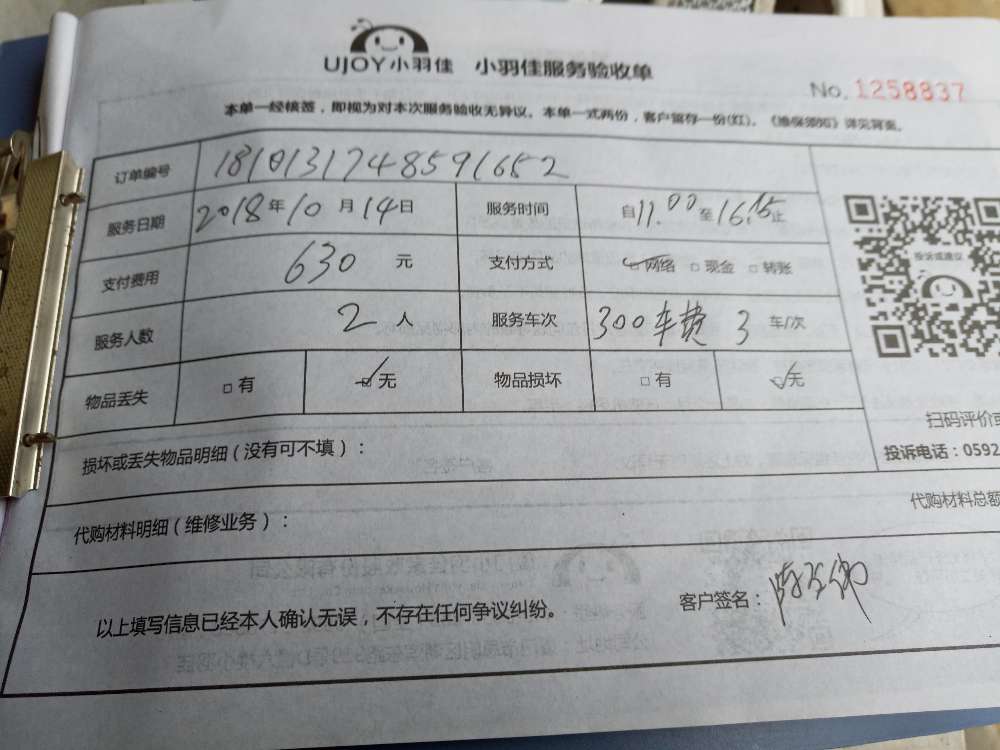 UJOY小羽佳 小羽佳服务验收单
No. 1258837
本单一经核签，即视为对本次服务验收无异议。本单一式两份，客户留存一份(红)。《维保须知》详见背面。
订单编号 181013174859 1652
服务日期 2018年10月14日 服务时间 自11.00至16.15止
支付费用 630 元 支付方式 □网络 □现金 □转账
服务人数 2 人 服务车次 300车费 3 车/次
物品丢失 □有 □无 物品损坏 □有 □无
投诉或建议
扫码评价或
投诉电话：0592
损坏或丢失物品明细（没有可不填）：
代购材料明细（维修业务）： 代购材料总额
以上填写信息已经本人确认无误，不存在任何争议纠纷。 客户签名：